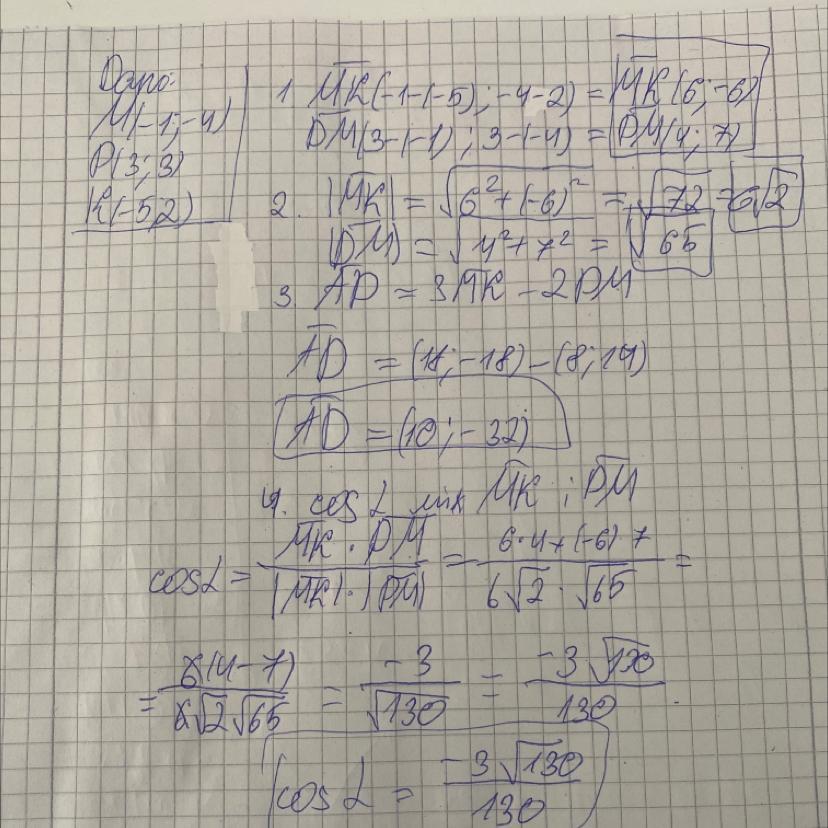 Дано:
M(-1;-4)
P(3;3)
K(-5;2)
1. MK(-1-(-5);-4-2) = MK(6;-6)
PM(3-(-1);3-(-4) = PM(4;7)
2. |MK| = √6²+(-6)² = √72 = 6√2
|PM| = √4²+7² = √65
3. AD = 3MK - 2PM
AD = (18;-18)-(8;14)
AD = (10;-32)
4. cosL між MK ; PM
cosL = MK · PM / |MK|·|PM| = 6·4+(-6)·7 / 6√2 · √65 =
= 6(4-7) / 6√2√65 = -3 / √130 = -3√130 / 130
cosL = -3√130 / 130